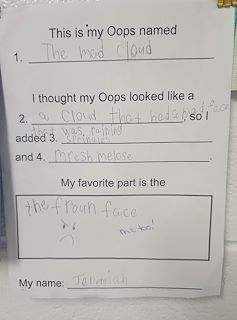 This is my Oops named
1. The mad cloud
I thought my Oops looked like a
2. a cloud that had a mad face, so I
that was raining
added 3. sprinkles
and 4. mresh melose.
My favorite part is the
the froun face
me too!
My name: Jeremiah